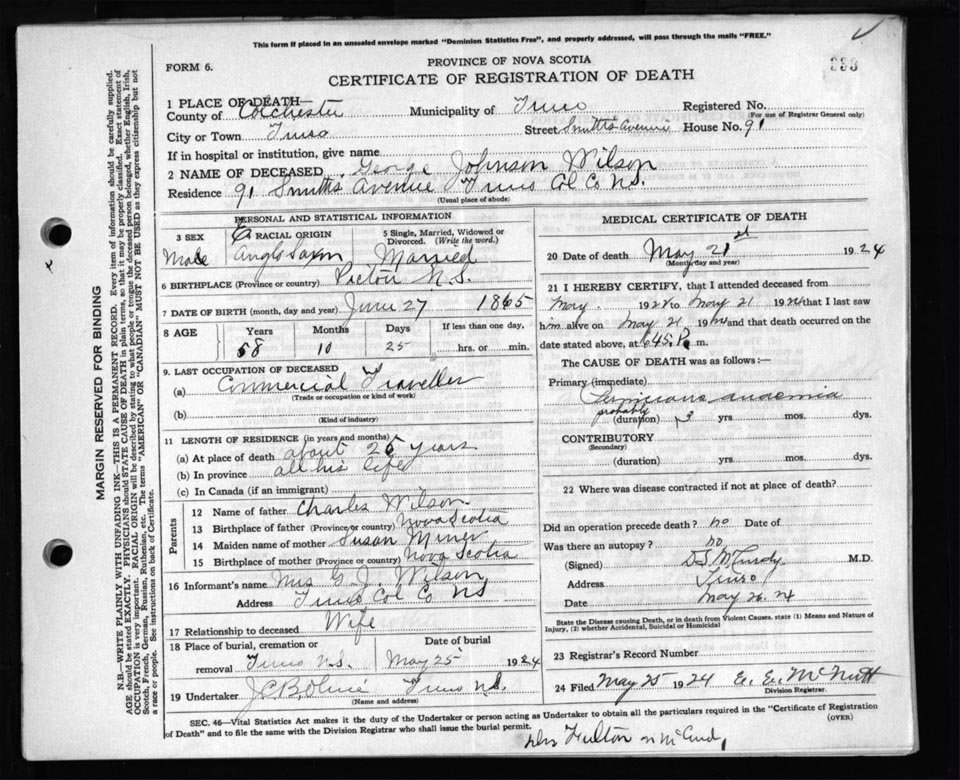 This form if placed in an unsealed envelope marked "Dominion Statistics Free", and properly addressed, will pass through the mails "FREE."
FORM 6.
PROVINCE OF NOVA SCOTIA
CERTIFICATE OF REGISTRATION OF DEATH
333
1 PLACE OF DEATH—
County of Colchester Municipality of Truro Registered No.
(For use of Registrar General only)
City or Town Truro Street Smith's Avenue House No. 91
If in hospital or institution, give name
2 NAME OF DECEASED George Johnson Wilson
Residence 91 Smith's Avenue Truro Col Co NS.
(Usual place of abode)
PERSONAL AND STATISTICAL INFORMATION
3 SEX RACIAL ORIGIN 5 Single, Married, Widowed or Divorced. (Write the word.)
Male Anglo Saxon Married
6 BIRTHPLACE (Province or country) Pictou N.S.
7 DATE OF BIRTH (month, day and year) June 27 1865
8 AGE Years Months Days If less than one day,
58 10 25 hrs. or min.
9. LAST OCCUPATION OF DECEASED
(a) Commercial Traveller
(Trade or occupation or kind of work)
(b)
(Kind of industry)
11 LENGTH OF RESIDENCE (in years and months)
(a) At place of death about 25 years
(b) In province all his life
(c) In Canada (if an immigrant)
Parents
12 Name of father Charles Wilson
13 Birthplace of father (Province or country) Nova Scotia
14 Maiden name of mother Susan Miner
15 Birthplace of mother (Province or country) Nova Scotia
16 Informant's name Mrs G. J. Wilson
Address Truro Col Co NS
17 Relationship to deceased Wife
18 Place of burial, cremation or removal Truro N.S. Date of burial May 25 1924
19 Undertaker Truro N.S.
(Name and address)
MEDICAL CERTIFICATE OF DEATH
20 Date of death May 21st 1924
(Month, day and year)
21 I HEREBY CERTIFY, that I attended deceased from
May. 192 to May 21 1924 that I last saw
him alive on May 21 192 and that death occurred on
date stated above, at 6.45 P. m.
The CAUSE OF DEATH was as follows:—
Primary (immediate)
Pernicious anaemia
probably
(duration) 3 yrs. mos. dys.
CONTRIBUTORY
(Secondary)
(duration) yrs. mos. dys.
22 Where was disease contracted if not at place of death?
Did an operation precede death? no Date of
Was there an autopsy? no
(Signed) D.S. McCurdy M.D.
Address Truro
Date May 26 24
State the Disease causing Death, or in death from Violent Causes, state (1) Means and Nature of
Injury, (2) whether Accidental, Suicidal or Homicidal
23 Registrar's Record Number
24 Filed May 25 1924 E. E. McNutt
Division Registrar.
SEC. 46—Vital Statistics Act makes it the duty of the Undertaker or person acting as Undertaker to obtain all the particulars required in the "Certificate of Registration
of Death" and to file the same with the Division Registrar who shall issue the burial permit. (OVER)
Drs Fulton
MARGIN RESERVED FOR BINDING
N.B.—WRITE PLAINLY WITH UNFADING INK—THIS IS A PERMANENT RECORD. Every item of information should be carefully supplied.
AGE should be stated EXACTLY. PHYSICIANS should STATE CAUSE OF DEATH in plain terms, so that it may be properly classified. Exact statement of
OCCUPATION is very important. RACIAL ORIGIN will be described by stating to what people or tongue the deceased person belonged, whether English, Irish,
Scotch, French, German, Russian, Ruthenian, etc. The terms "AMERICAN" or "CANADIAN" MUST NOT BE USED as they express citizenship but not
a race or people. See instructions on back of Certificate.